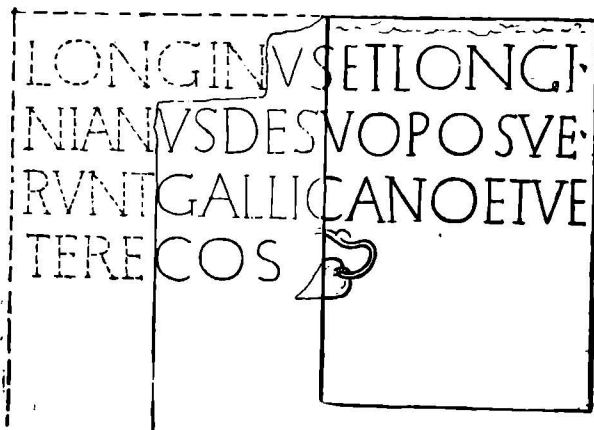 LONGINVSETLONGI·
NIANVSDESVOPOSVE·
RVNTGALLICANOETVE
TERECOS